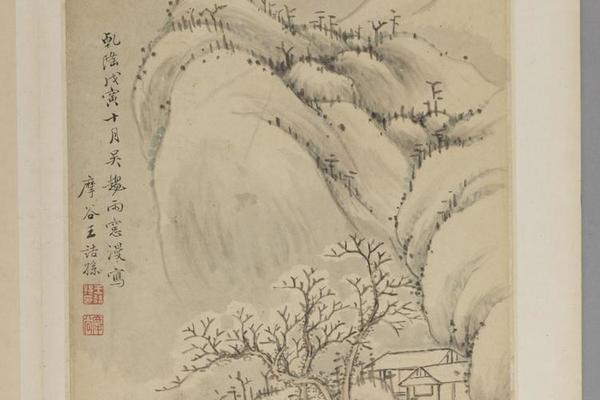 乾隆戊寅十月吳趨雨窓漫寫
摩谷王詒孫